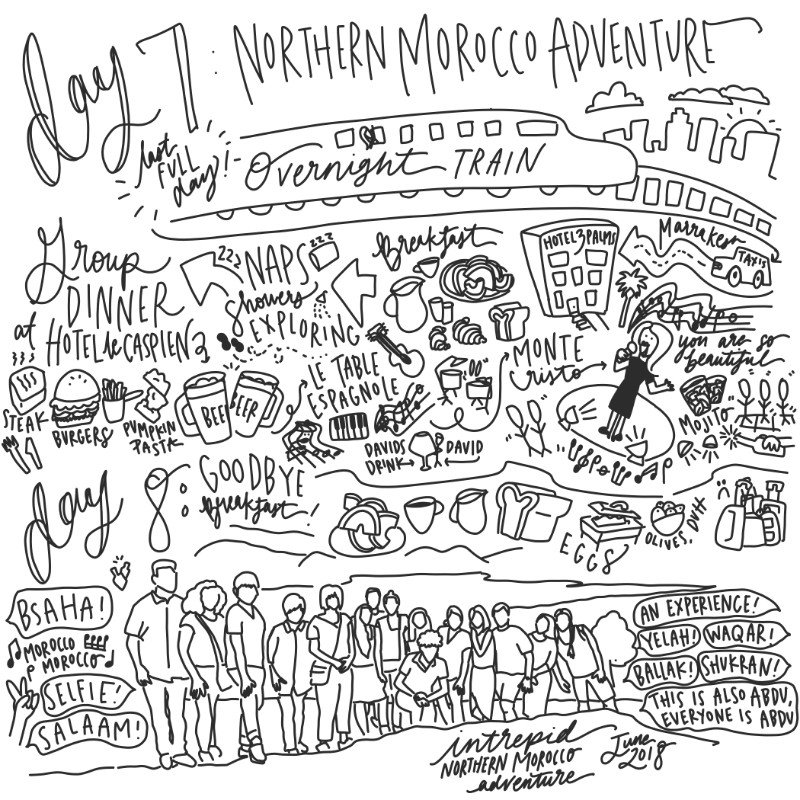 day 7: NORTHERN MOROCCO ADVENTURE
last
FULL
day!
Overnight TRAIN
Marrakesh
TAXIS
HOTEL 3 PALMS
Breakfast
zzz NAPS zzz
showers
EXPLORING
Group
DINNER
at
HOTEL le CASPIEN
STEAK
BURGERS
PUMPKIN
PASTA
BEER
BEER
LE TABLE
ESPAGNOLE
DAVIDS
DRINK
DAVID
MONTE
Cristo
you are so
beautiful
MOJITO
day 8:
GOODBYE
breakfast!
EGGS
OLIVES,
BSAHA!
MOROCCO
MOROCCO
SELFIE!
SALAAM!
AN EXPERIENCE!
YELAH!
WAQAR!
BALLAK!
SHUKRAN!
THIS IS ALSO ABDU,
EVERYONE IS ABDU
intrepid
NORTHERN MOROCCO
adventure
June
2018